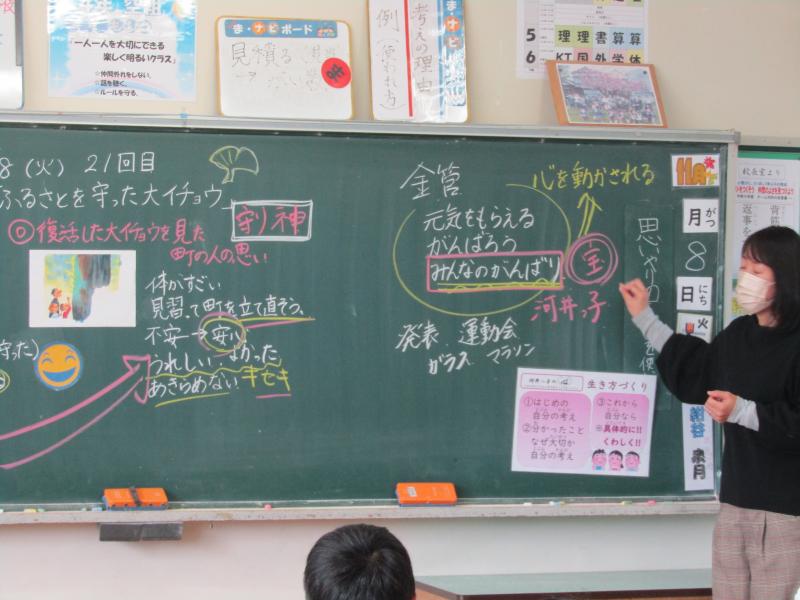 「一人一人を大切にできる
楽しく明るいクラス」
☆仲間外れをしない。
☆話を聴く。
☆ルールを守る。
ま・ナビボード
見積る
考えの理由
例
5 理理書算算
6 KT国外学体
8(火) 21回目
ふるさとを守った大イチョウ
守り神
◎復活した大イチョウを見た
町の人の思い
体がすごい
見習って町を立て直そう、
不安→安い
うれしい、よかった
あきらめない キセキ
守った)
金管
心を動かされる
元気をもらえる
がんばろう
みんなのがんばり
宝
河井っ子
発表 運動会
ガラス マラソン
思いやりの
11月
月 がつ
8
日 にち
火
生き方づくり
①はじめの
自分の考え
②分かったこと
なぜ大切か
自分の考え
③これから
自分なら
※具体的に!!
くわしく!!
校長室より